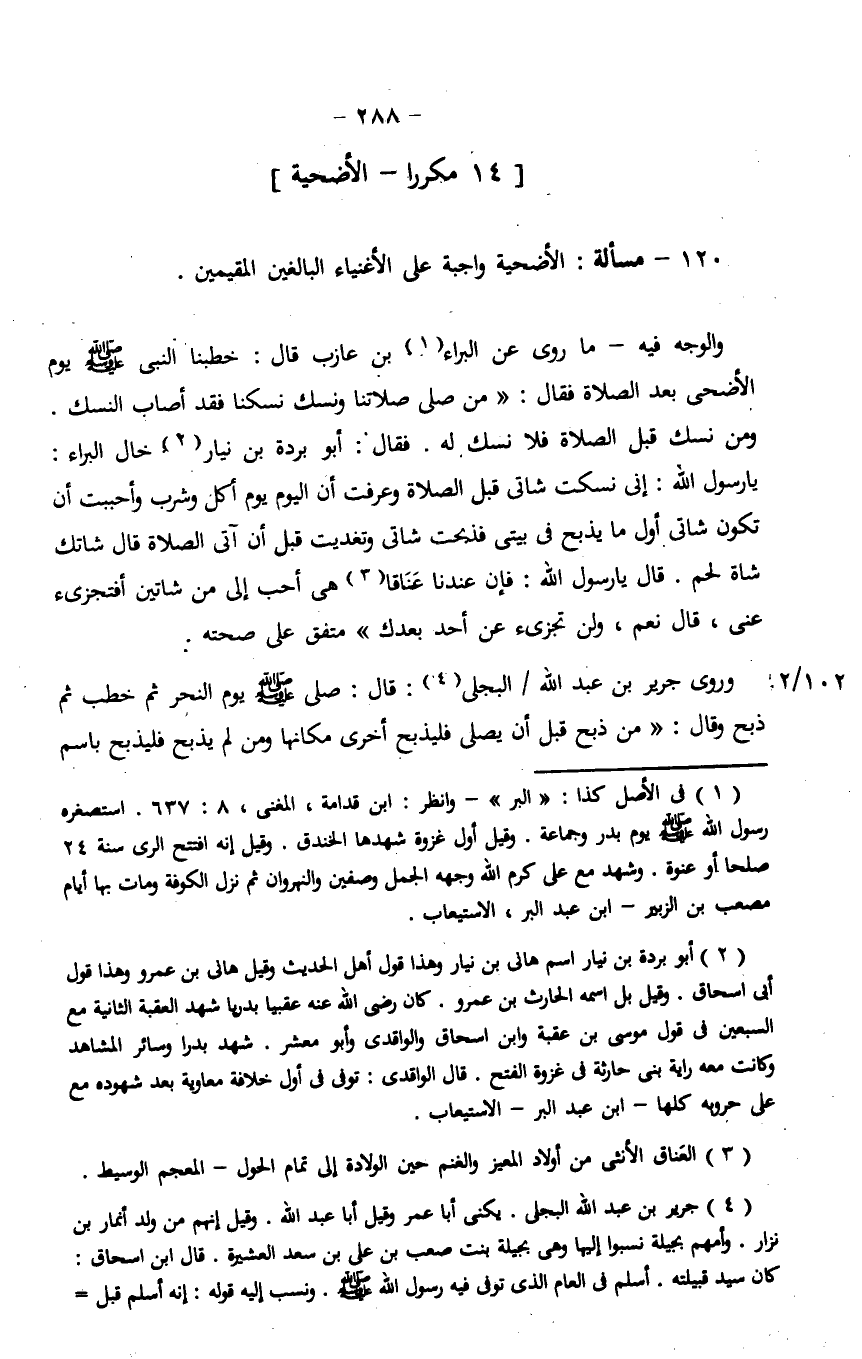 – ٢٨٨ –
[ ١٤ مكررا – الأضحية ]
١٢٠ – مسألة : الأضحية واجبة على الأغنياء البالغين المقيمين .
والوجه فيه – ما روى عن البراء(١) بن عازب قال : خطبنا النبى ﷺ يوم
الأضحى بعد الصلاة فقال : « من صلى صلاتنا ونسك نسكنا فقد أصاب النسك .
ومن نسك قبل الصلاة فلا نسك له . فقال : أبو بردة بن نيار(٢) خال البراء :
يارسول الله : إنى نسكت شاتى قبل الصلاة وعرفت أن اليوم يوم أكل وشرب وأحببت أن
تكون شاتى أول ما يذبح فى بيتى فذبحت شاتى وتغديت قبل أن آتى الصلاة قال شاتك
شاة لحم . قال يارسول الله : فإن عندنا عَنَاقا(٣) هى أحب إلى من شاتين أفتجزىء
عنى ، قال نعم ، ولن تجزىء عن أحد بعدك » متفق على صحته .
وروى جرير بن عبد الله / البجلى(٤) : قال : صلى ﷺ يوم النحر ثم خطب ثم
٢/١٠٢
ذبح وقال : « من ذبح قبل أن يصلى فليذبح أخرى مكانها ومن لم يذبح فليذبح باسم
(١) فى الأصل كذا : « البر » – وانظر : ابن قدامة ، المغنى ، ٨ : ٦٣٧ . استصغره
رسول الله ﷺ يوم بدر وجماعة . وقيل أول غزوة شهدها الخندق . وقيل إنه افتتح الرى سنة ٢٤
صلحا أو عنوة . وشهد مع على كرم الله وجهه الجمل وصفين والنهروان ثم نزل الكوفة ومات بها أيام
مصعب بن الزبير – ابن عبد البر ، الاستيعاب .
(٢) أبو بردة بن نيار اسم هانى بن نيار وهذا قول أهل الحديث وقيل هانى بن عمرو وهذا قول
أبى اسحاق . وقيل بل اسمه الحارث بن عمرو . كان رضى الله عنه عقبيا بدريا شهد العقبة الثانية مع
السبعين فى قول موسى بن عقبة وابن اسحاق والواقدى وأبو معشر . شهد بدرا وسائر المشاهد
وكانت معه راية بنى حارثة فى غزوة الفتح . قال الواقدى : توفى فى أول خلافة معاوية بعد شهوده مع
على حروبه كلها – ابن عبد البر – الاستيعاب .
(٣) العَناق الأنثى من أولاد المعيز والغنم حين الولادة إلى تمام الحول – المعجم الوسيط .
(٤) جرير بن عبد الله البجلى . يكنى أبا عمر وقيل أبا عبد الله . وقيل إنهم من ولد أنمار بن
نزار . وأمهم بجيلة نسبوا إليها وهى بجيلة بنت صعب بن على بن سعد العشيرة . قال ابن اسحاق :
كان سيد قبيلته . أسلم فى العام الذى توفى فيه رسول الله ﷺ . ونسب إليه قوله : إنه أسلم قبل =